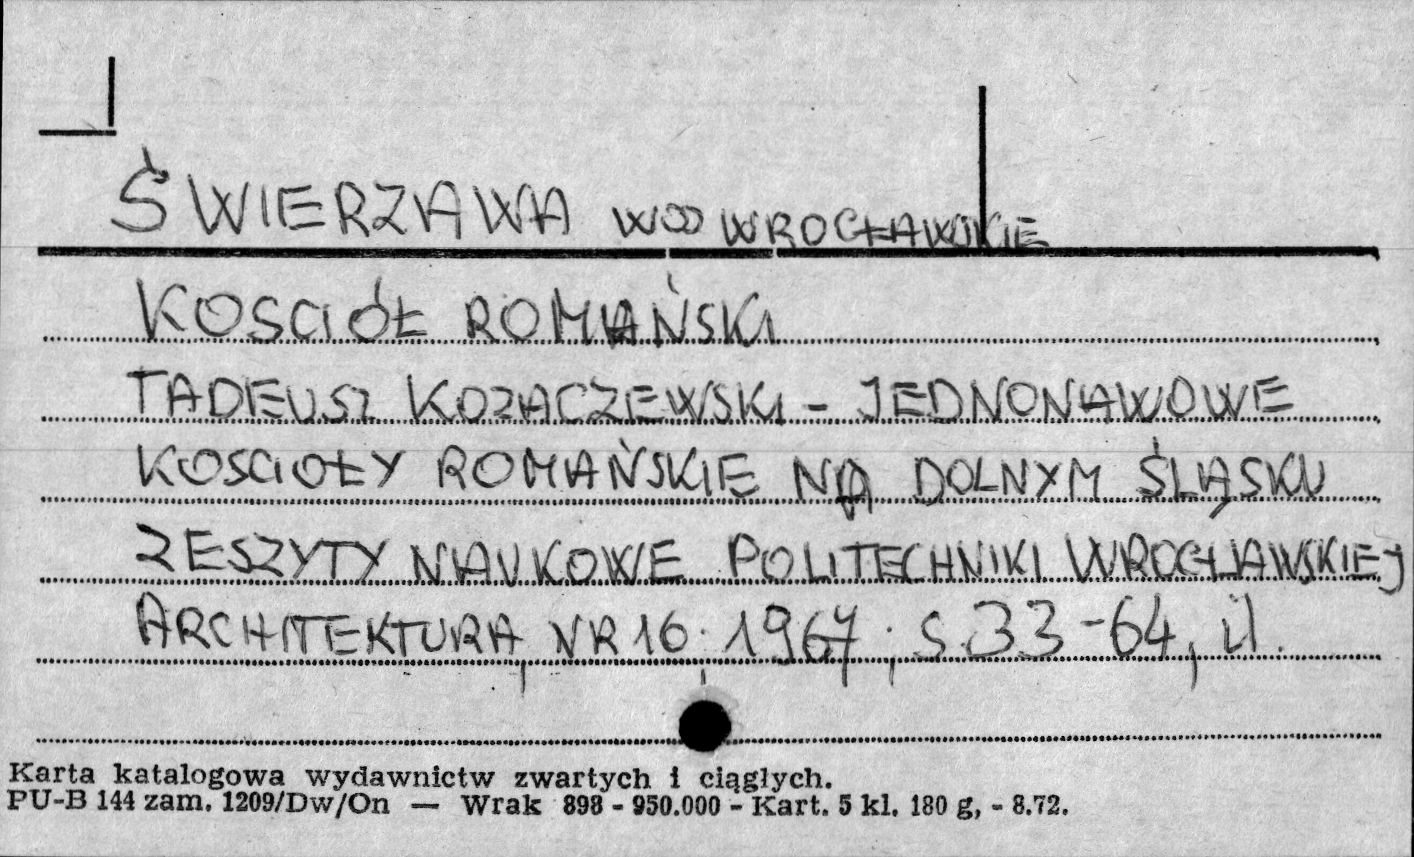 ŚWIERZAWA WOJ WROCŁAWSKIE
KOSCIÓŁ ROMAŃSKI
TADEUSZ KOZACZEWSKI - JEDNONAWOWE
KOSCIOŁY ROMAŃSKIE NA DOLNYM ŚLĄSKU
ZESZYTY NAUKOWE POLITECHNIKI WROCŁAWSKIEJ
ARCHITEKTURA, NR 16. 1967; S. 33-64, il.
Karta katalogowa wydawnictw zwartych i ciągłych.
PU-B 144 zam. 1209/Dw/On — Wrak 898 - 950.000 - Kart. 5 kl. 180 g, - 8.72.